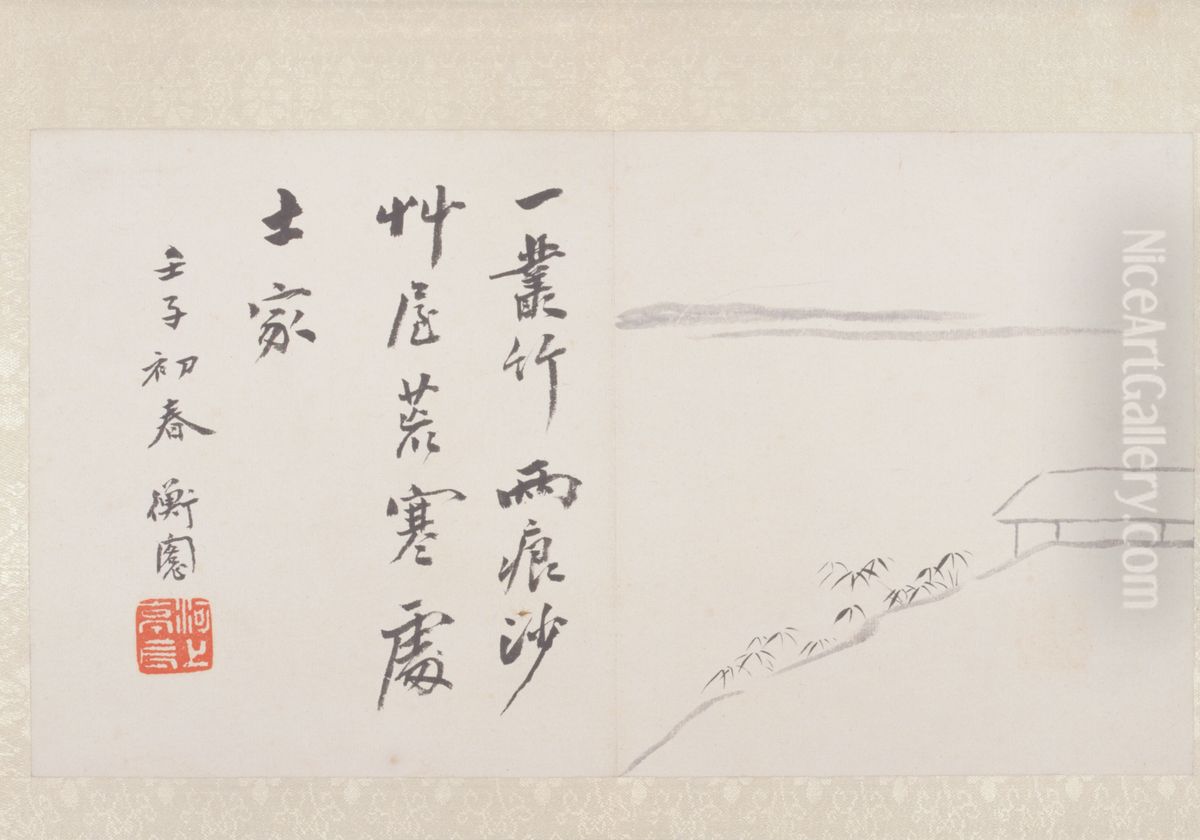 一叢竹雨痕沙
艸屋荒寒處
士家
壬子初春 衡
河上
NiceArtGallery.com